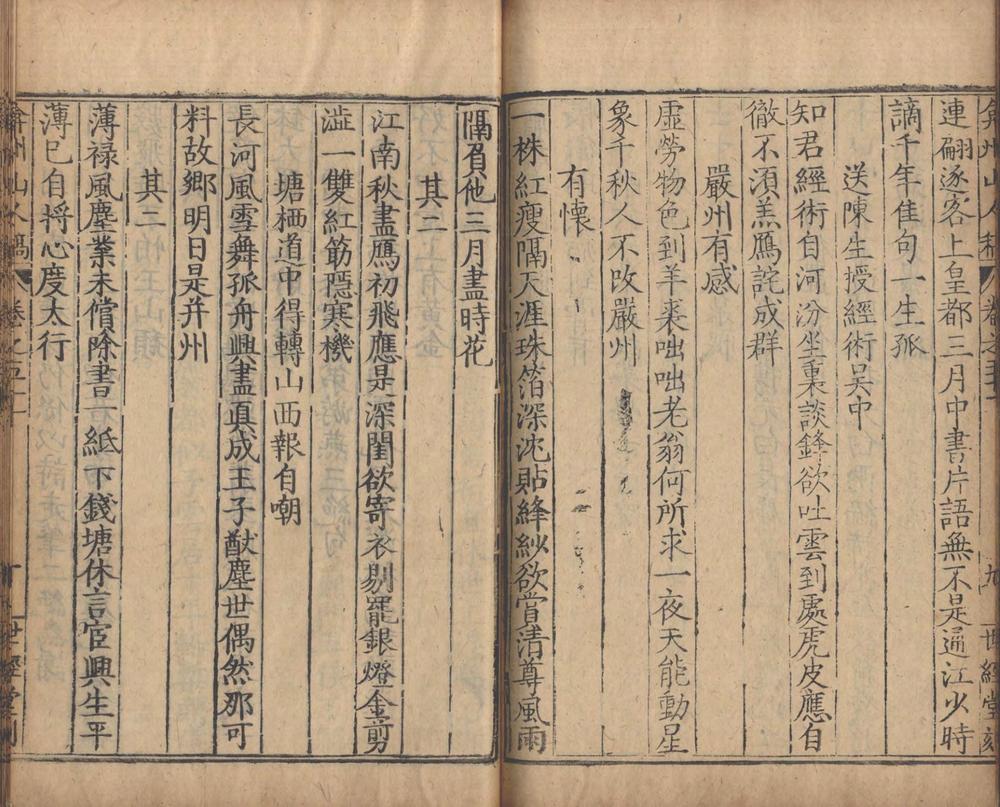 弇州山人稿 卷之五十 九 世經堂刻
連翩逐客上皇都三月中書片語無不是過江少時
謫千年佳句一生孤
送陳生授經術吳中
知君經術自河汾坐裏談鋒欲吐雲到處虎皮應自
徹不湏羔鴈詫成群
嚴州有感
虛勞物色到羊裘咄咄老翁何所求一夜天能動星
象千秋人不改嚴州
有懷
一株紅瘦隔天涯珠箔深沈貼絳紗欲嘗清尊風雨
隔負他三月盡時花
其二
江南秋盡鴈初飛應是深閨欲寄衣剔罷銀燈金剪
澁一雙紅筯隱寒機
塘栖道中得轉山西報自嘲
長河風雪舞孤舟興盡真成王子猷塵世偶然那可
料故鄉明日是并州
其二
薄祿風塵業未償除書一紙下錢塘休言宦興生平
薄已自捋心度太行
弇州山人稿 卷之五十 十 世經堂刻